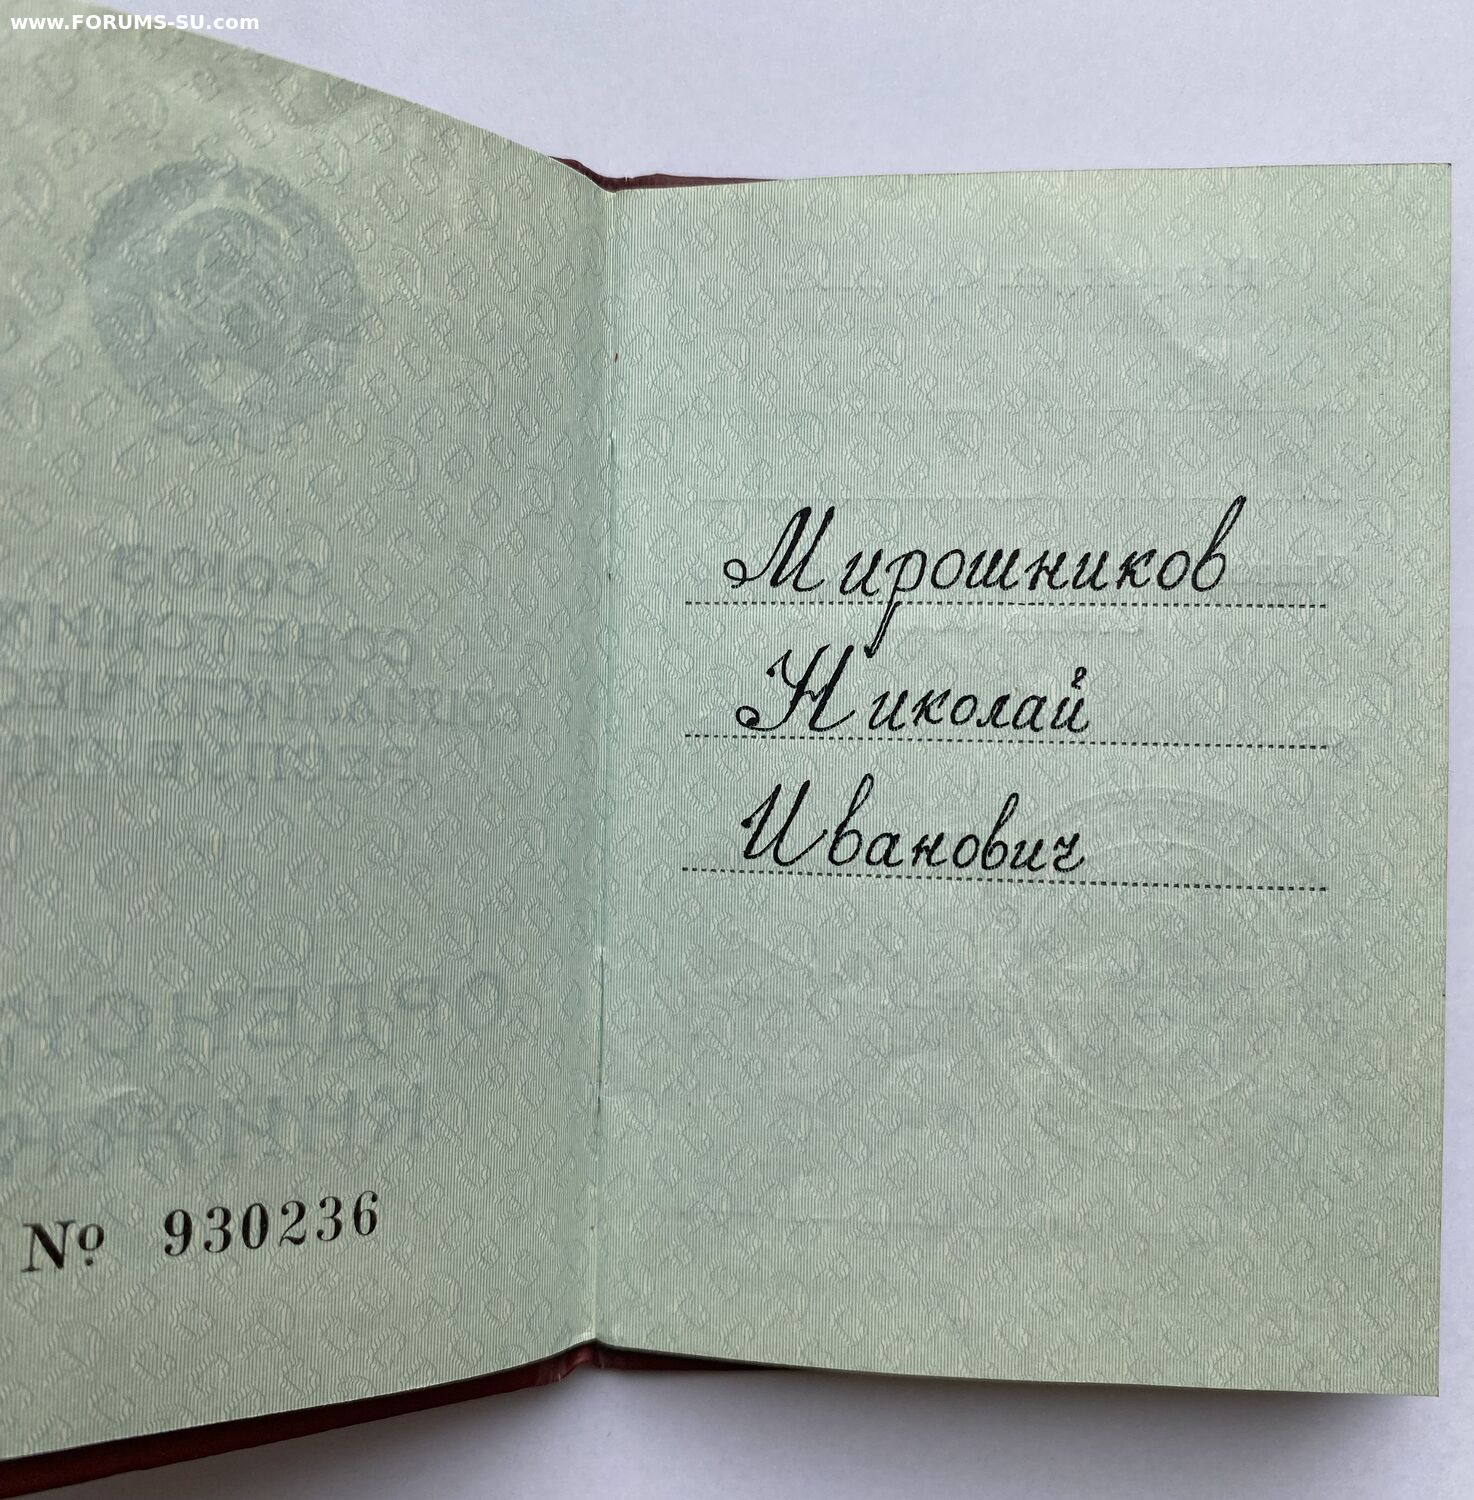 www.FORUMS-SU.com
№ 930236
Мирошников
Николай
Иванович